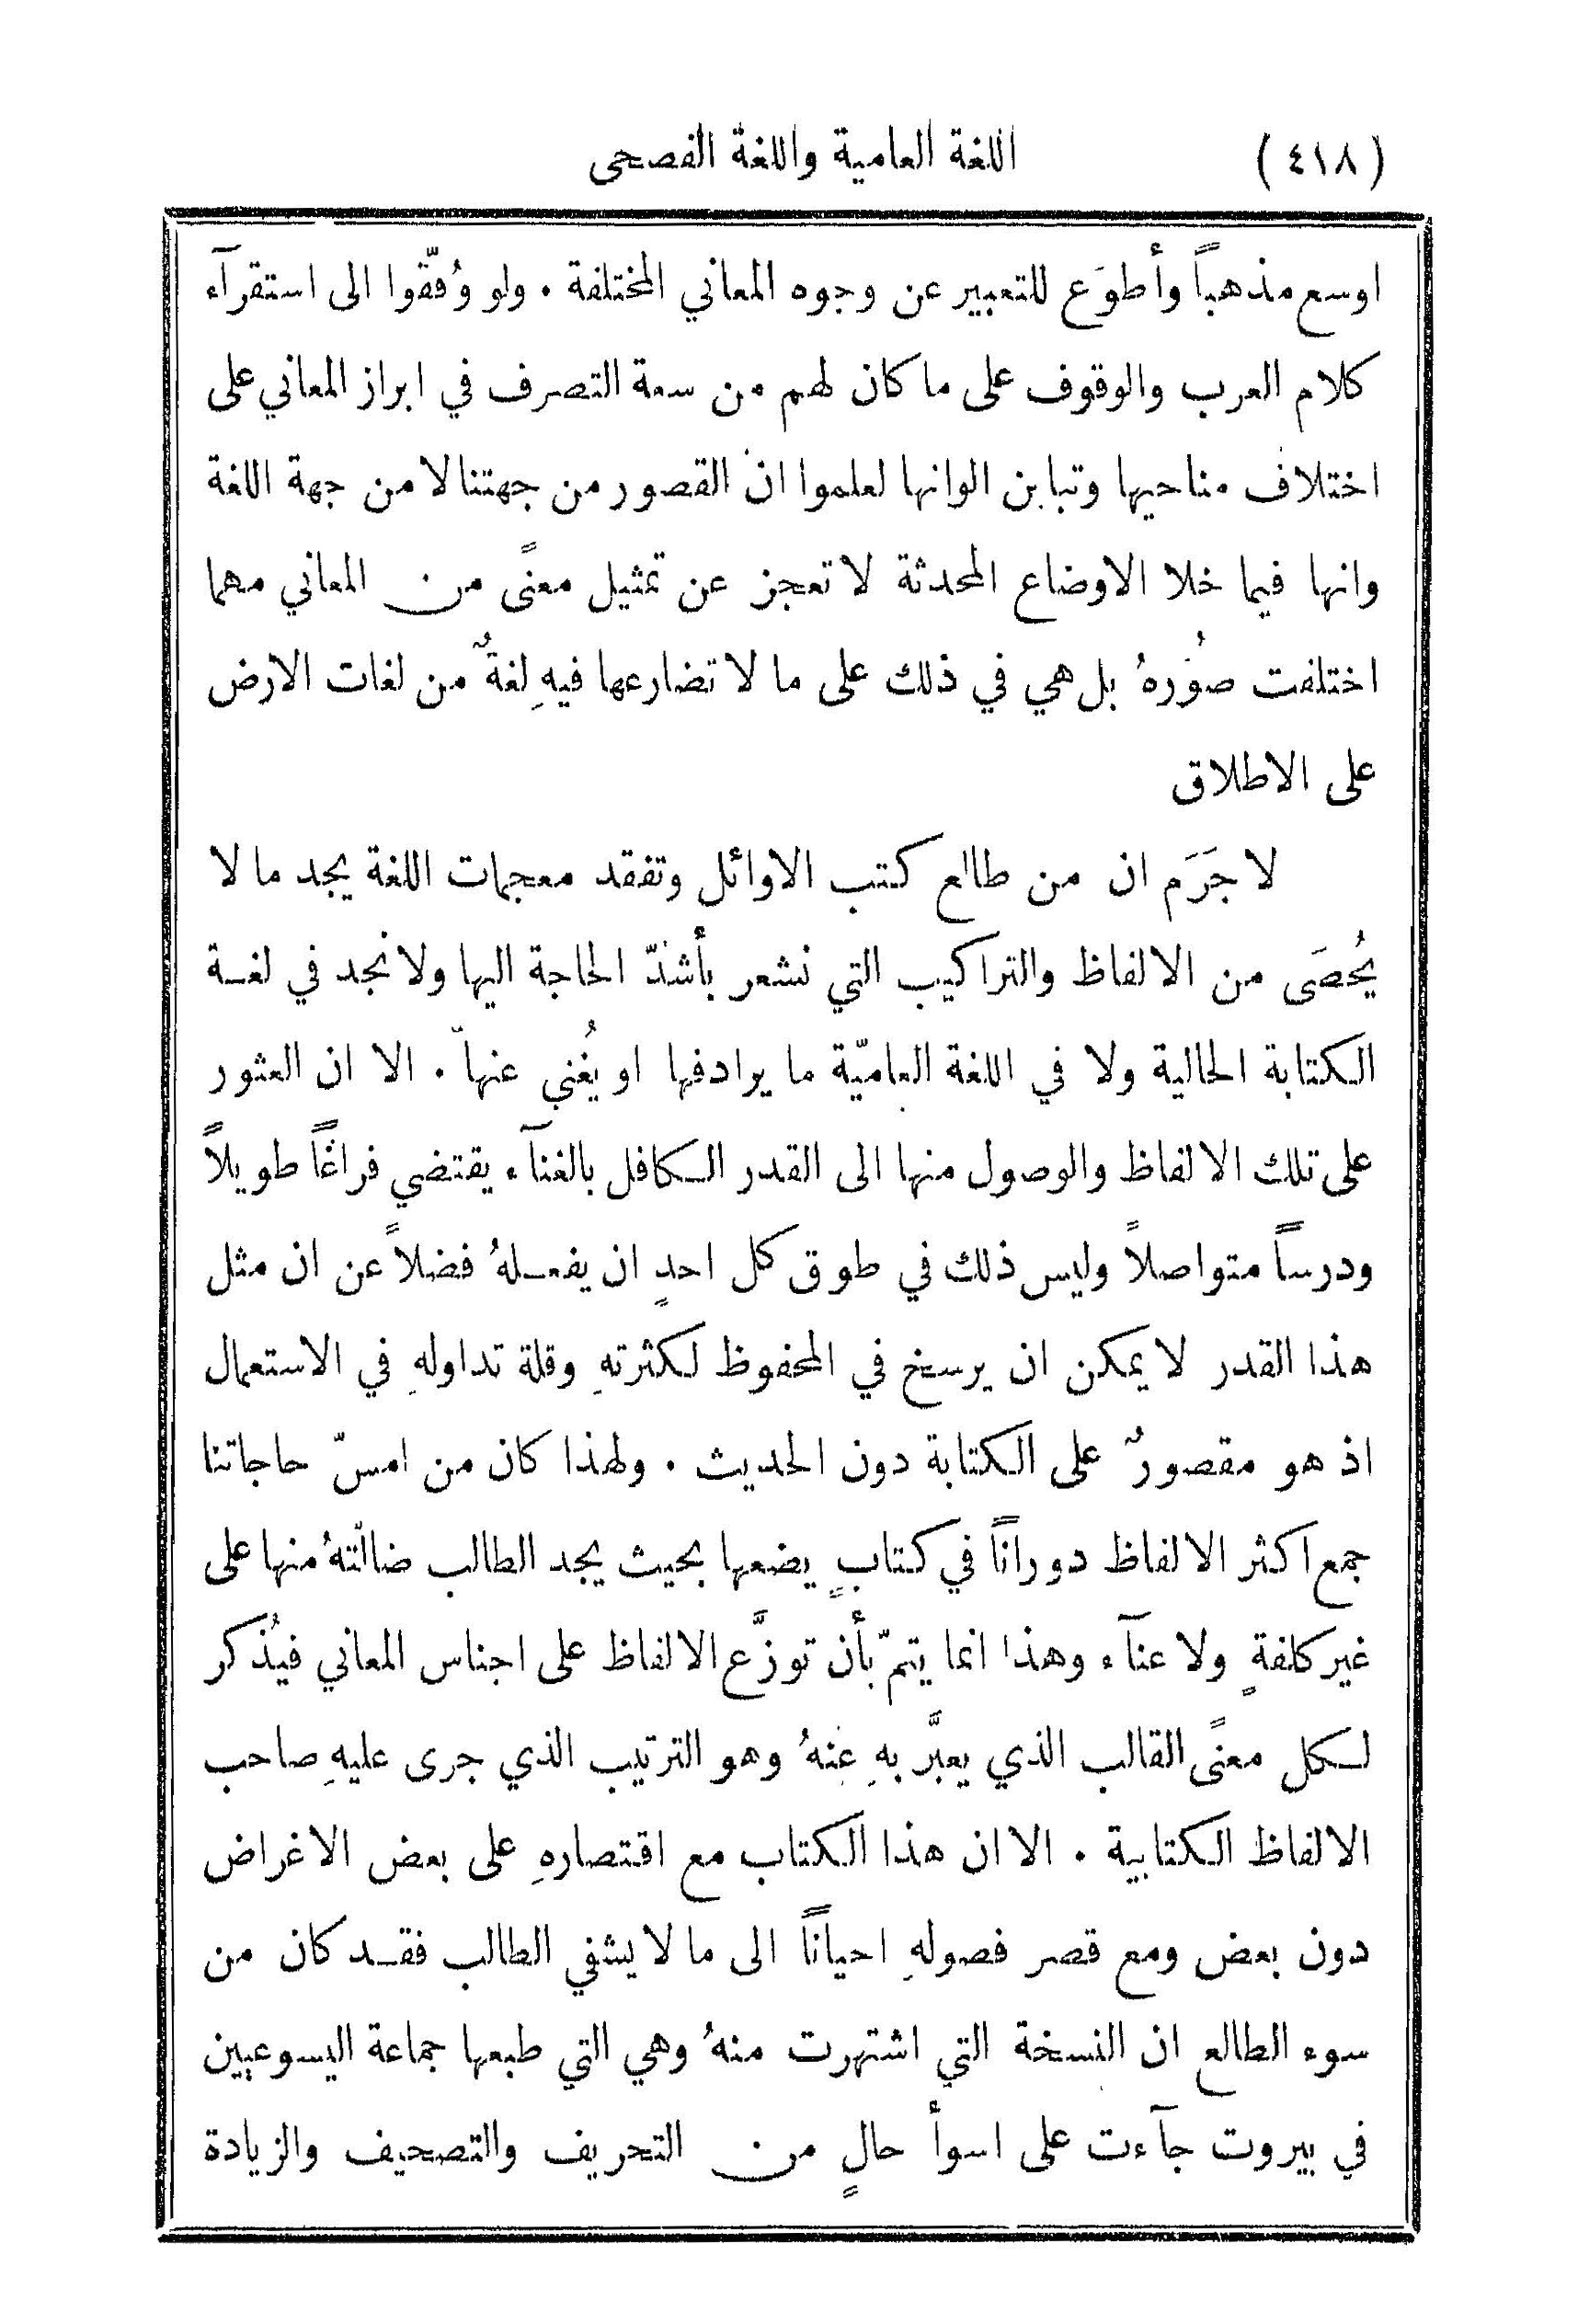 (٤١٨) اللغة العامية واللغة الفصحى
اوسع مذهباً وأطوَع للتعبير عن وجوه المعاني المختلفة . ولو وُفّقوا الى استقرآء
كلام العرب والوقوف على ما كان لهم من سعة التصرف في ابراز المعاني على
اختلاف مناحيها وتباين الوانها لعلموا ان القصور من جهتنا لا من جهة اللغة
وانها فيما خلا الاوضاع المحدثة لا تعجز عن تمثيل معنًى من المعاني مهما
اختلفت صُوَرهُ بل هي في ذلك على ما لا تضارعها فيهِ لغةٌ من لغات الارض
على الاطلاق
لا جَرَم ان من طالع كتب الاوائل وتفقد معجمات اللغة يجد ما لا
يُحصَى من الالفاظ والتراكيب التي نشعر بأشدّ الحاجة اليها ولا نجد في لغة
الكتابة الحالية ولا في اللغة العاميّة ما يرادفها او يُغني عنها . الا ان العثور
على تلك الالفاظ والوصول منها الى القدر الكافل بالغنآء يقتضي فراغاً طويلاً
ودرساً متواصلاً وليس ذلك في طوق كل احدٍ ان يفعلهُ فضلاً عن ان مثل
هذا القدر لا يمكن ان يرسخ في المحفوظ لكثرتهِ وقلة تداولهِ في الاستعمال
اذ هو مقصورٌ على الكتابة دون الحديث . ولهذا كان من امسّ حاجاتنا
جمع اكثر الالفاظ دوراناً في كتابٍ يضعها بحيث يجد الطالب ضالّتهُ منها على
غير كلفةٍ ولا عنآء وهذا انما يتمّ بأن توزَّع الالفاظ على اجناس المعاني فيُذكر
لكل معنًى القالب الذي يعبَّر بهِ عنهُ وهو الترتيب الذي جرى عليهِ صاحب
الالفاظ الكتابية . الا ان هذا الكتاب مع اقتصارهِ على بعض الاغراض
دون بعض ومع قصر فصولهِ احياناً الى ما لا يشفي الطالب فقد كان من
سوء الطالع ان النسخة التي اشتهرت منهُ وهي التي طبعها جماعة اليسوعيين
في بيروت جآءت على اسوأ حالٍ من التحريف والتصحيف والزيادة